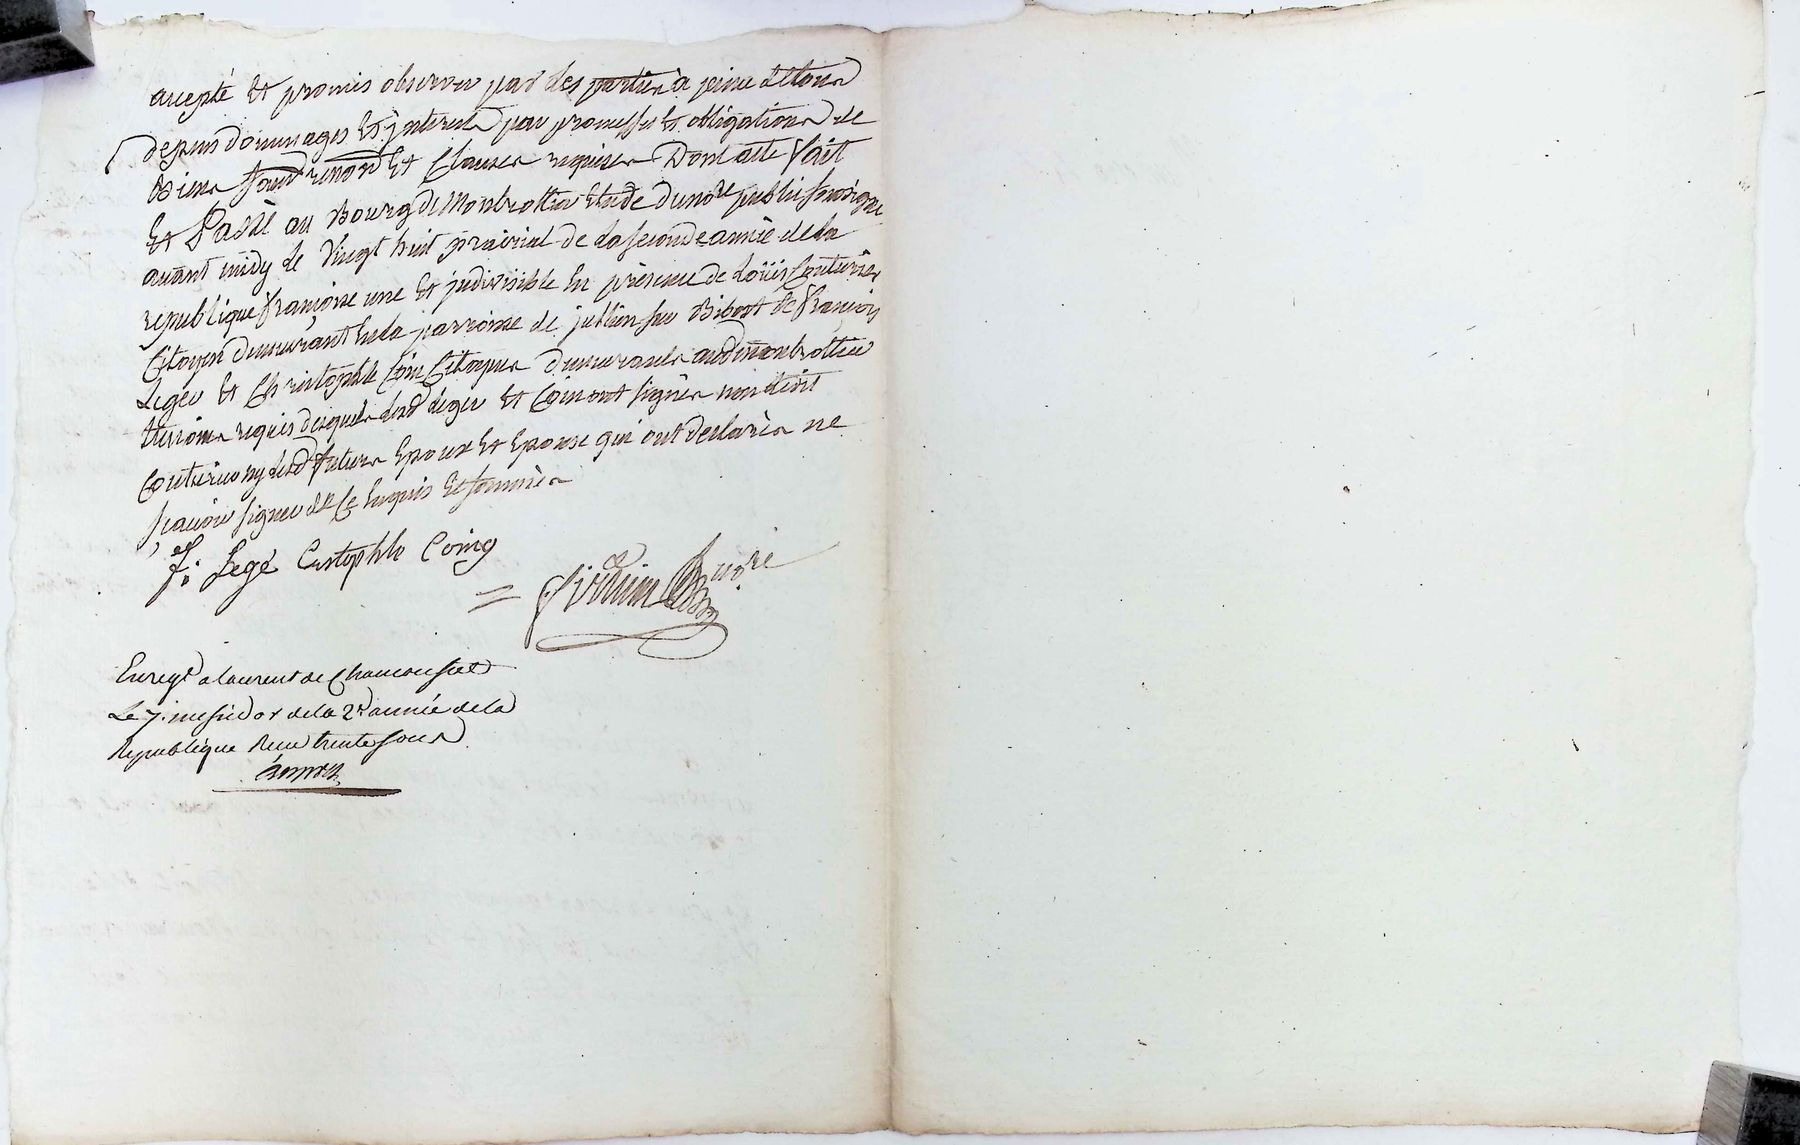 accepté Et promis observer par les parties a peine de tous
depens dommages Et jnterests par promesses Et obligations de
Biens soumissions Et Clauses requises Dont acte Fait
Et Passé au Bourg de Montrottier Etude du nore public soussigné
avant midy le Vingt huit prairial de la seconde année de la
republique françoise une Et jndivisible En présence de Loüis Couturier
Citoyen demeurant En la parroisse de jullien sur Bibost de François
Leger Et Christophle Coin Citoyens demeurants audt montrottier
temoins requis desquels lesd Leger Et Coin ont signés non ledit
Couturier ny lesd futurs Epoux Et Epouse qui ont declarés ne
scavoir signer de ce Enquis Et sommés
f: Legé Cristophle Coing
nore
Enregé a Laurent de Chamousset
Le 7 messidor de la 2e année de la
Republique Reçu trente sous